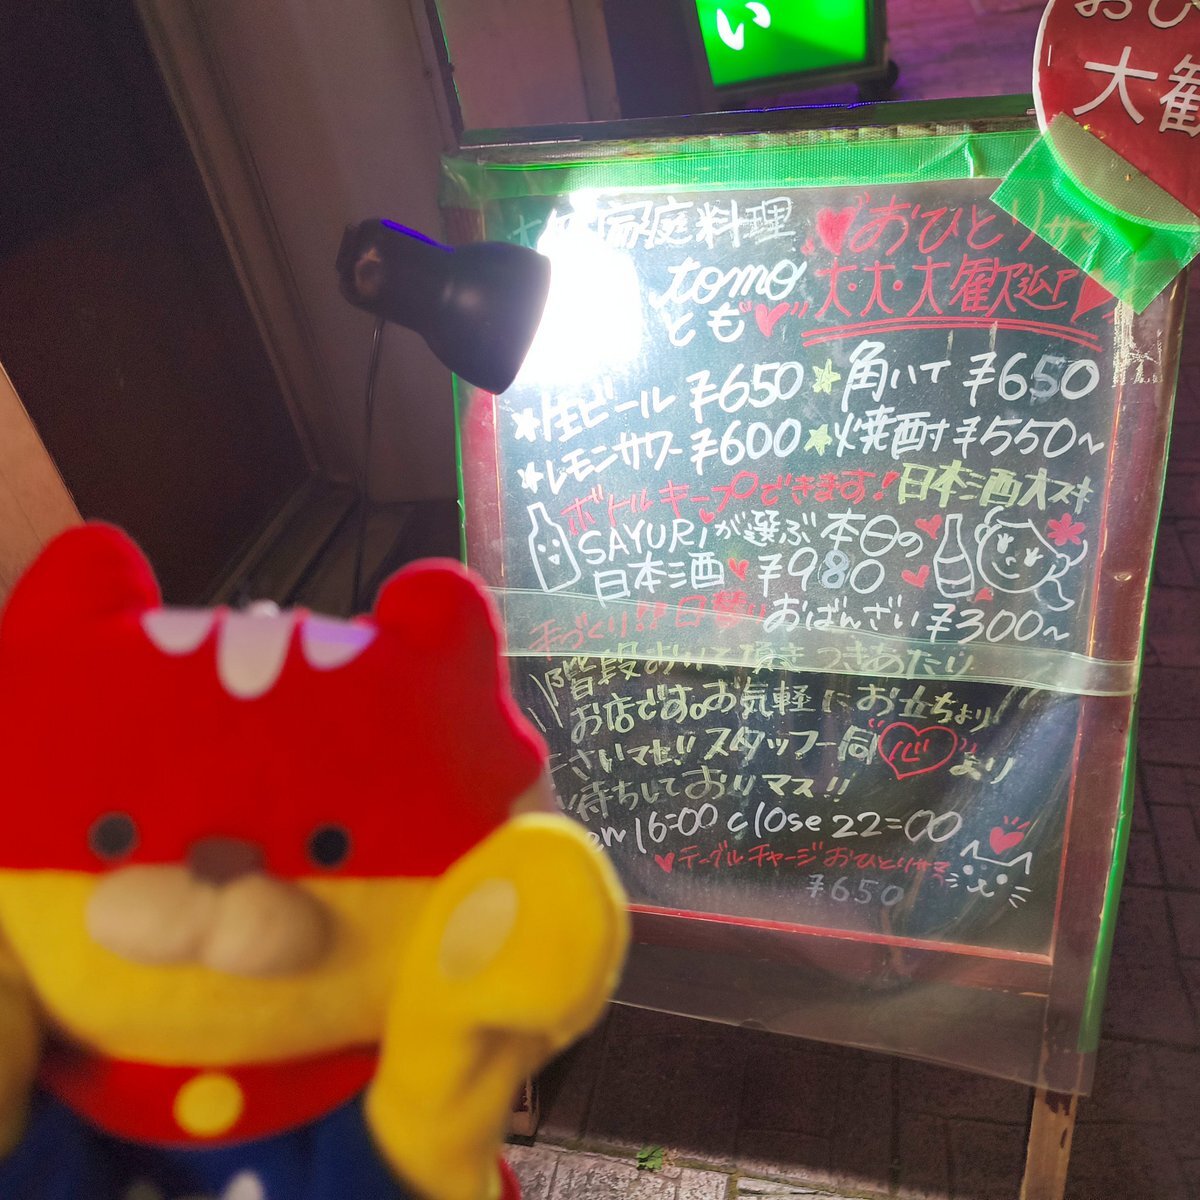 い
おひ
大歓
家庭料理
tomo
とも
おひとりサマ
大・大・大歓迎
★生ビール ¥650 ★角ハイ ¥650
★レモンサワー ¥600 ★焼酎 ¥550〜
ボトルキープできます! 日本酒大スキ
SAYURIが選ぶ本日の
日本酒 ¥980
手づくり!!日替り おばんざい ¥300〜
階段おりて頂きつきあたり
お店です。お気軽にお立ちより
ださいマセ!! スタッフ一同"心"より
お待ちしておりマス!!
en 16:00 close 22:00
テーブルチャージおひとりサマ
¥650